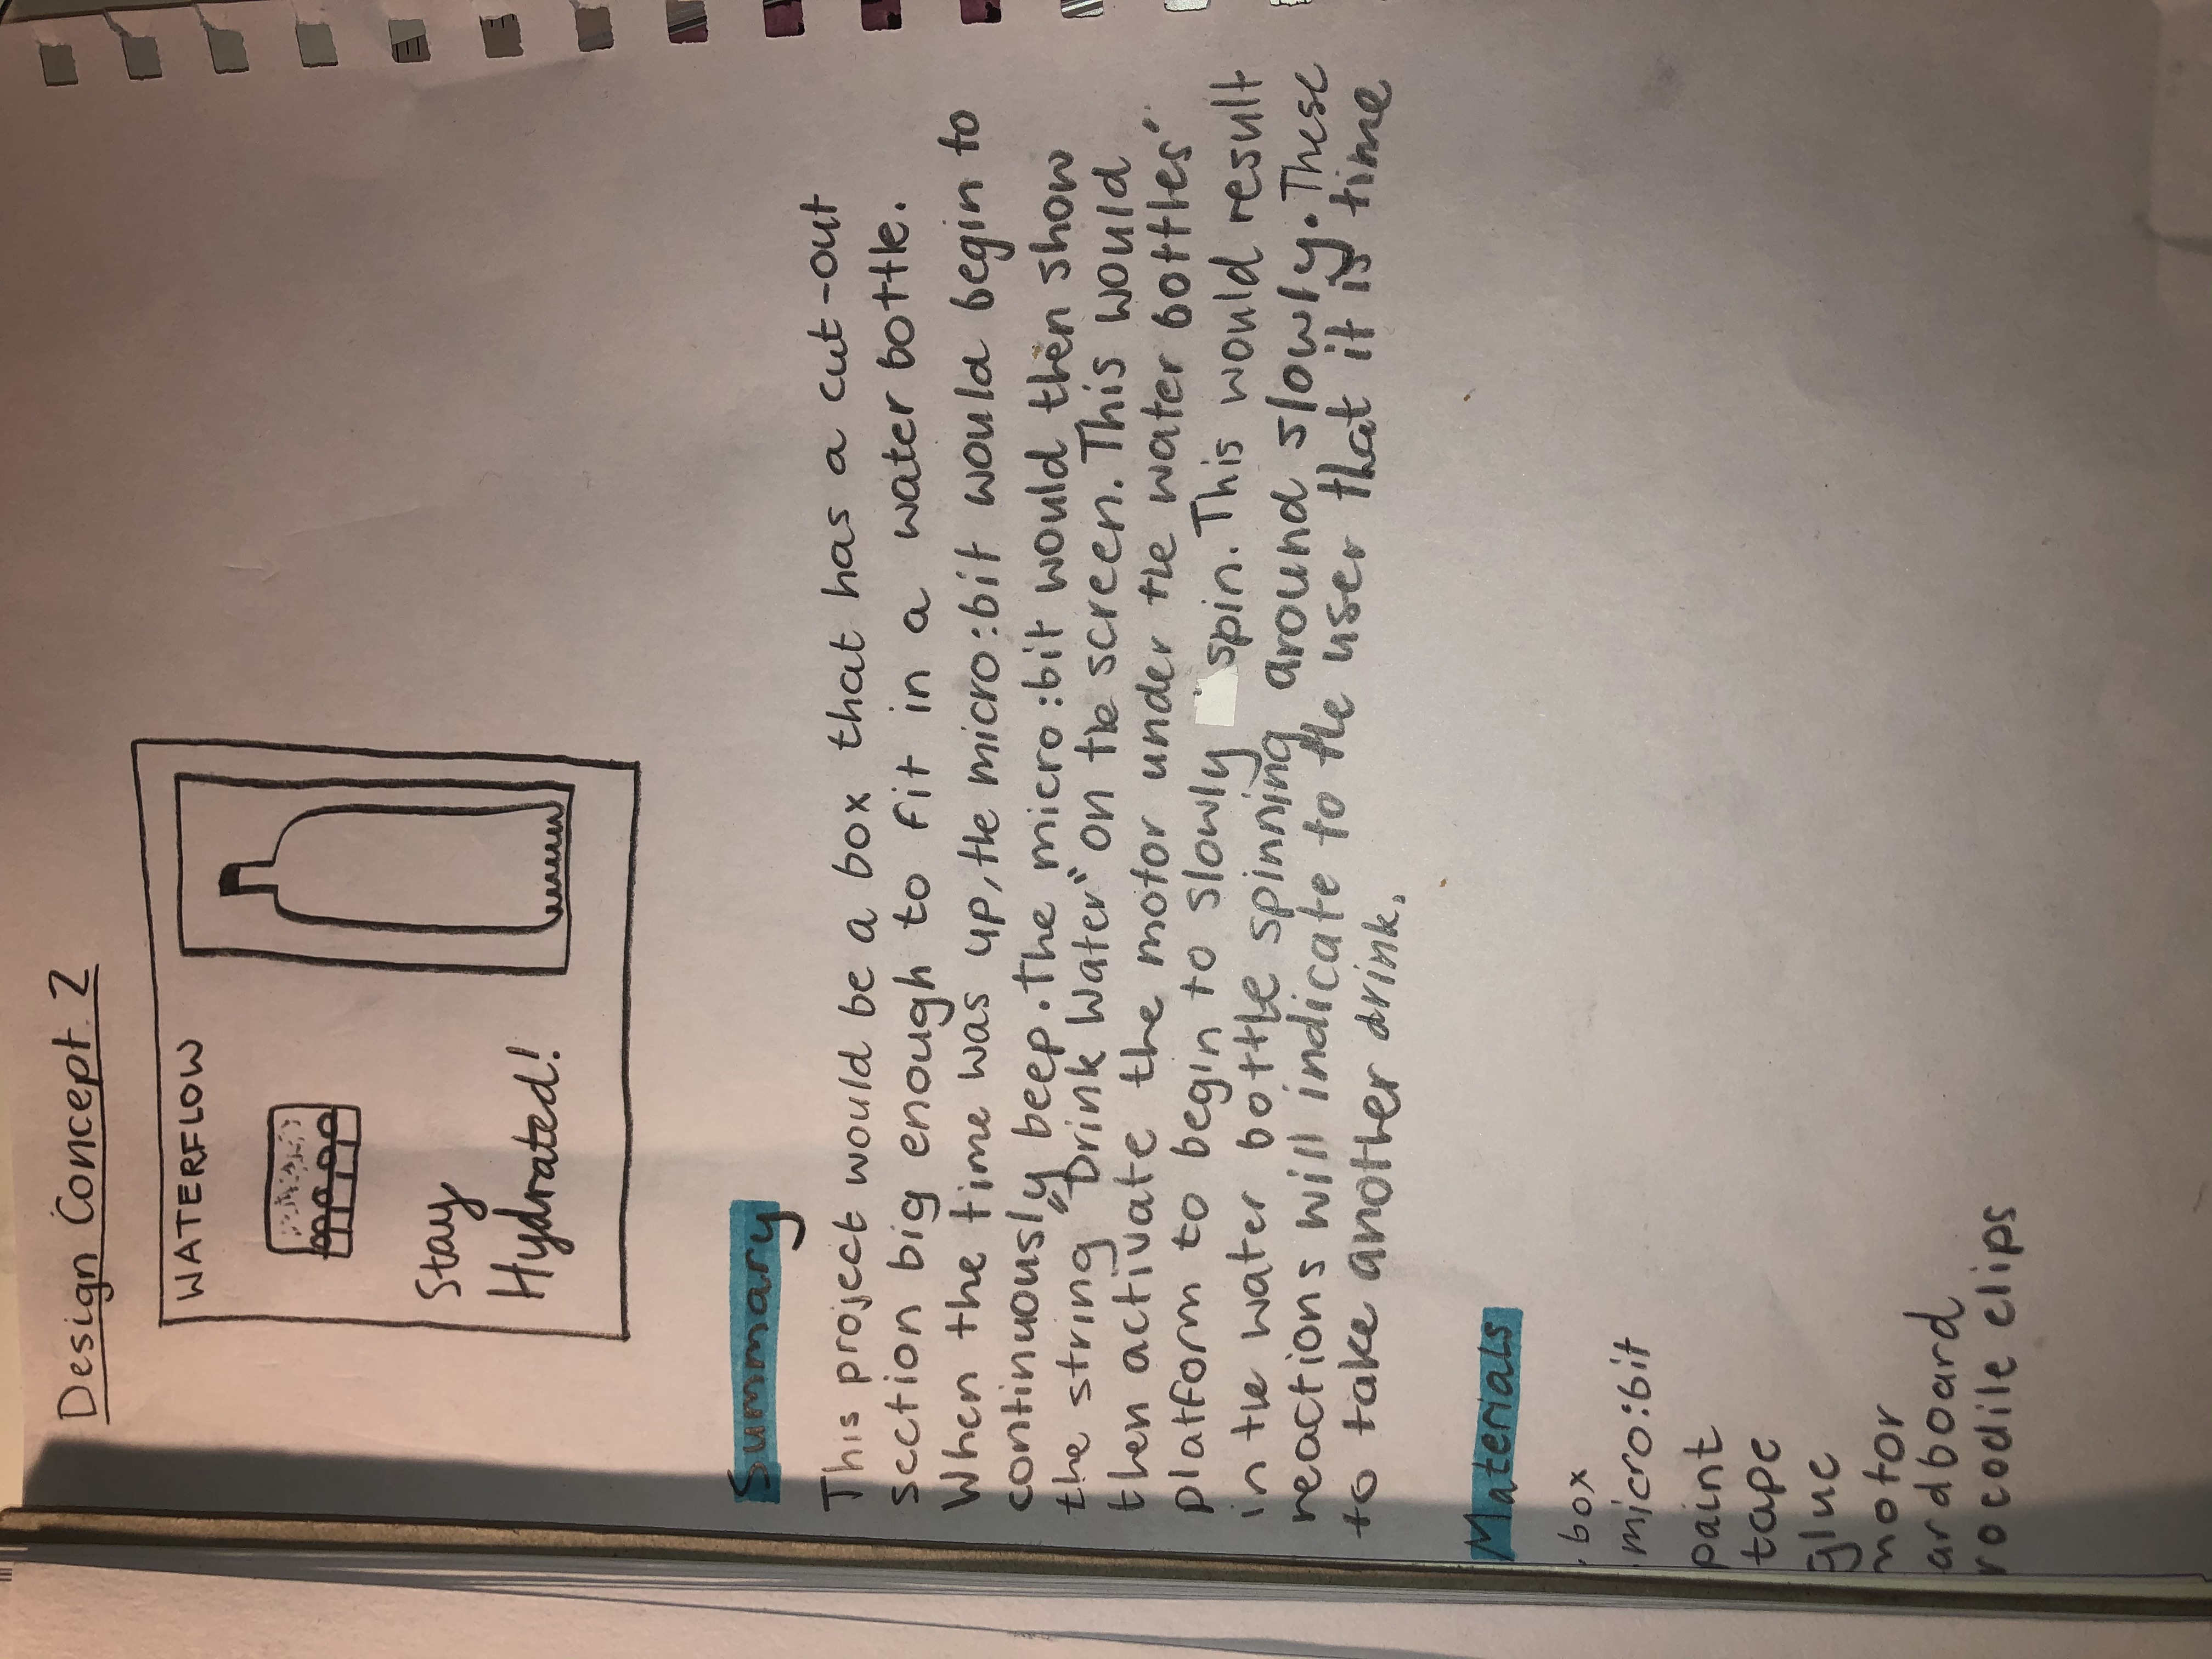 Design Concept 2
WATERFLOW
Stay
Hydrated!
Summary
This project would be a box that has a cut-out
section big enough to fit in a water bottle.
When the time was up, the micro:bit would begin to
continuously beep. The micro:bit would then show
the string "Drink Water" on the screen. This would
then activate the motor under the water bottles"
platform to begin to slowly spin. This would result
in the water bottle spinning around slowly. These
reactions will indicate to the user that it is time
to take another drink.
Materials
· box
· micro:bit
paint
tape
glue
motor
ardboard
rocodile clips